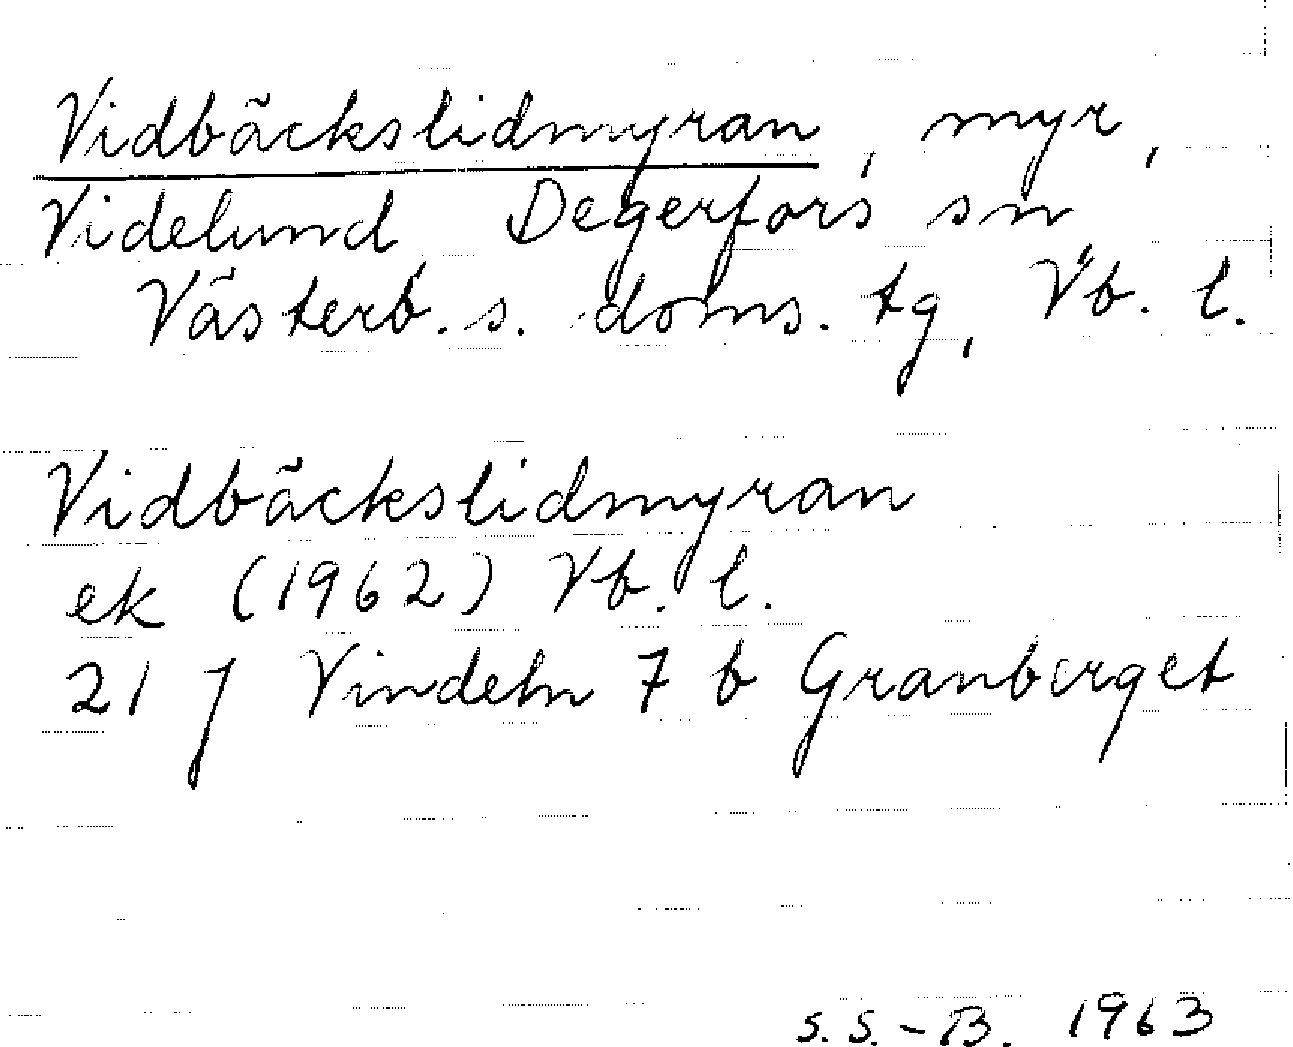 Vidbäckslidmyran, myr,
Videlund Degerfors sn,
Västerb. s. doms. tg, Vb. l.
Vidbäckslidmyran
ek (1962) Vb. l.
21 J Vindeln 7 b Granberget
S. S.-B. 1963